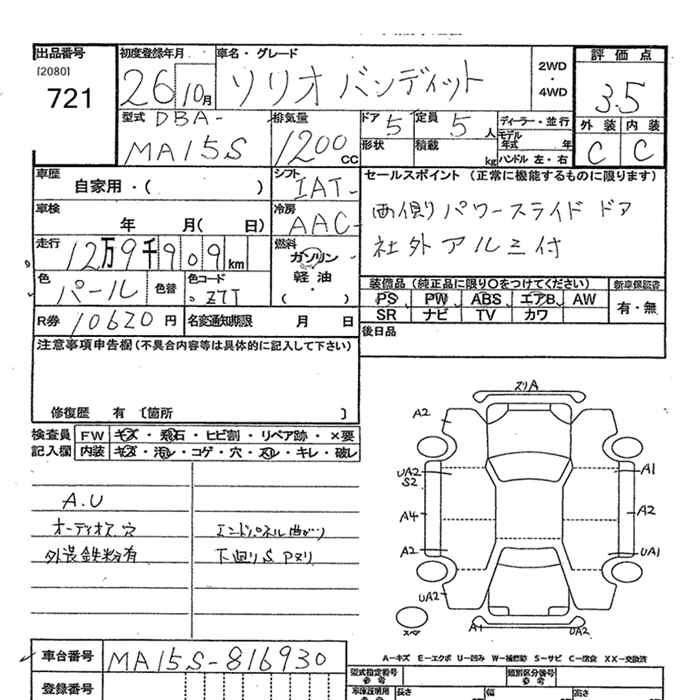 出品番号 初度登録年月 車名・グレード 評価点
[2080]
721
26 10月 ソリオ バンディット 2WD・4WD 3.5
型式 DBA- 排気量 ドア 5 定員 5人 ディーラー・並行 外装 内装
MA15S 1200cc 形状 積載 kg モデル年式 年 C C
ハンドル 左・右
車歴 自家用・( ) シフト IAT- セールスポイント (正常に機能するものに限ります)
車検 年 月( 日) 冷房 AAC- 両側パワースライドドア
走行 12万9千909km 燃料 ガソリン 軽油・( ) 社外アルミ付
色 パール 色替 色コード Z7T 装備品 (純正品に限り○をつけてください) 新車保証書
PS PW ABS エアB AW 有・無
R券 10620円 名変通知期限 月 日 SR ナビ TV カワ
注意事項申告欄(不具合内容等は具体的に記入して下さい) 後日品
修復歴 有 〔箇所 〕
検査員 FW キズ・飛石・ヒビ割・リペア跡・×要
記入欄 内装 キズ・汚レ・コゲ・穴・スレ・キレ・破レ
A.U
オーディオス穴 エンドパネル曲がり
外装鉄粉有 下廻りS Pヌリ
スリA
A2
UA2 A1
S2
A4 A2
A2 UA1
UA2
スペア A1 UA2
車台番号 MA15S-816930
A−キズ E−エクボ U−凹み W−補修跡 S−サビ C−腐食 XX−交換済
登録番号 型式指定番号 参考 類別区分番号 参考
長さ 幅 高さ